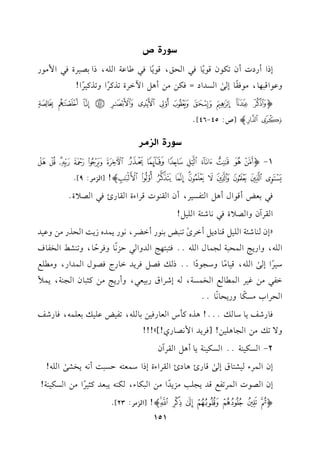 سورة ص
إذا أردت أن تكون قويًا في الحق، قويًا في طاعة الله، ذا بصيرة في الأمور
وعواقبها، موفقًا إلىٰ السداد = فكن من أهل الآخرة تذكرًا وتذكيرًا!
﴿وَٱذۡكُرۡ عِبَٰدَنَآ إِبۡرَٰهِيمَ وَإِسۡحَٰقَ وَيَعۡقُوبَ أُوْلِي ٱلۡأَيۡدِي وَٱلۡأَبۡصَٰرِ ۝ إِنَّآ أَخۡلَصۡنَٰهُم بِخَالِصَةٖ
ذِكۡرَى ٱلدَّارِ﴾ [ص: ٤٥-٤٦].
سورة الزمر
١- ﴿أَمَّنۡ هُوَ قَٰنِتٌ ءَانَآءَ ٱلَّيۡلِ سَاجِدٗا وَقَآئِمٗا يَحۡذَرُ ٱلۡأٓخِرَةَ وَيَرۡجُواْ رَحۡمَةَ رَبِّهِۦۗ قُلۡ هَلۡ
يَسۡتَوِي ٱلَّذِينَ يَعۡلَمُونَ وَٱلَّذِينَ لَا يَعۡلَمُونَۗ إِنَّمَا يَتَذَكَّرُ أُوْلُواْ ٱلۡأَلۡبَٰبِ﴾! [الزمر: ٩].
في بعض أقوال أهل التفسير، أن القنوت قراءة القارئ في الصلاة.
القرآن والصلاة في ناشئة الليل!
«إن لناشئة الليل قناديل أخرىٰ تنبض بنور أخضر، نور يمده زيت الحذر من وعيد
الله، وأريج المحبة لجمال الله . . فتبتهج الدوالي حزنًا وفرحًا، وتنشط الخفاف
سيرًا إلىٰ الله، قيامًا وسجودًا . . ذلك فصل فريد خارج فصول المدار، ومطلع
خفي من غير المطالع الخمسة، له إشراق ربيعي، وأريج من كثبان الجنة، يملأ
الحراب مسكًا وريحانًا . .
فارشف يا سالك . . .! هذه كأس العارفين بالله، تفيض عليك بعلمه، فارشف
ولا تك من الجاهلين! [فريد الأنصاري!]»!!!
٢- السكينة . . السكينة يا أهل القرآن
إن المرء ليشتاق إلىٰ قارئ هادئ القراءة إذا سمعته حسبت أنه يخشىٰ الله!
إن الصوت المرتفع قد يجلب مزيدًا من البكاء، لكنه يبعد كثيرًا من السكينة!
﴿ثُمَّ تَلِينُ جُلُودُهُمۡ وَقُلُوبُهُمۡ إِلَىٰ ذِكۡرِ ٱللَّهِ﴾! [الزمر: ٢٣].
١٥١